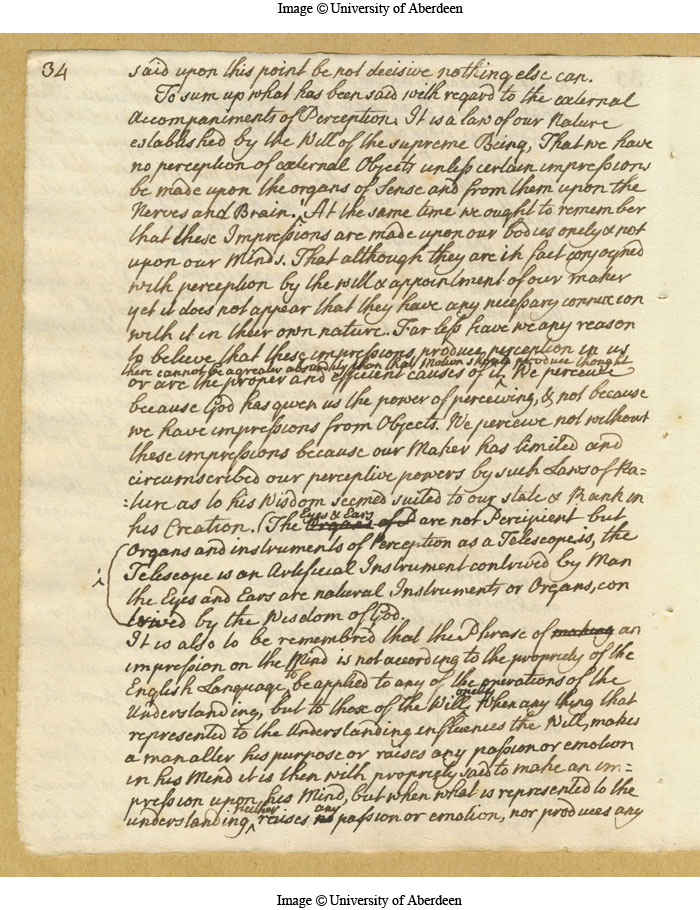 Image © University of Aberdeen
34
said upon this point be not decisive nothing else can.
To sum up what has been said with regard to the external
accompaniments of Perception. It is a law of our Nature
established by the Will of the supreme Being, That we have
no perception of external Objects unless certain impressions
be made upon the organs of Sense and from them upon the
Nerves and Brain. At the same time we ought to remember
that these Impressions are made upon our bodies onely & not
upon our Minds. That although they are in fact conjoyned
with perception by the will & appointment of our maker
yet it does not appear that they have any necessary connexion
with it in their own nature. Far less have we any reason
to believe that these impressions produce perception in us
there cannot be a greater absurdity than that Matter should produce thought
or are the proper and efficient causes of it, ^ We perceive
because God has given us the power of perceiving, & not because
we have impressions from Objects. We perceive not without
these impressions because our Maker has limited and
circumscribed our perceptive powers by such Laws of Na=
=ture as to his Wisdom seemed suited to our state & Rank in
Eyes & Ears
his Creation. (The Organs of P are not Percipient but
Organs and instruments of Perception as a Telescope is, the
Telescope is an Artificial Instrument contrived by Man
the Eyes and Ears are natural Instruments or Organs, con
trived by the Wisdom of God.
It is also to be remembred that the Phrase of making an
impression on the Mind is not according to the propriety of the
English Language to be applied to any of the operations of the
onely
Understanding, but to those of the Will ^ When any thing that
represented to the Understanding influences the Will, makes
a man alter his purpose or raises any passion or emotion
in his Mind it is then with propriety said to make an im=
pression upon his Mind, but when what is represented to the
neither any
understanding, ^ raises no passion or emotion, nor produces any
Image © University of Aberdeen